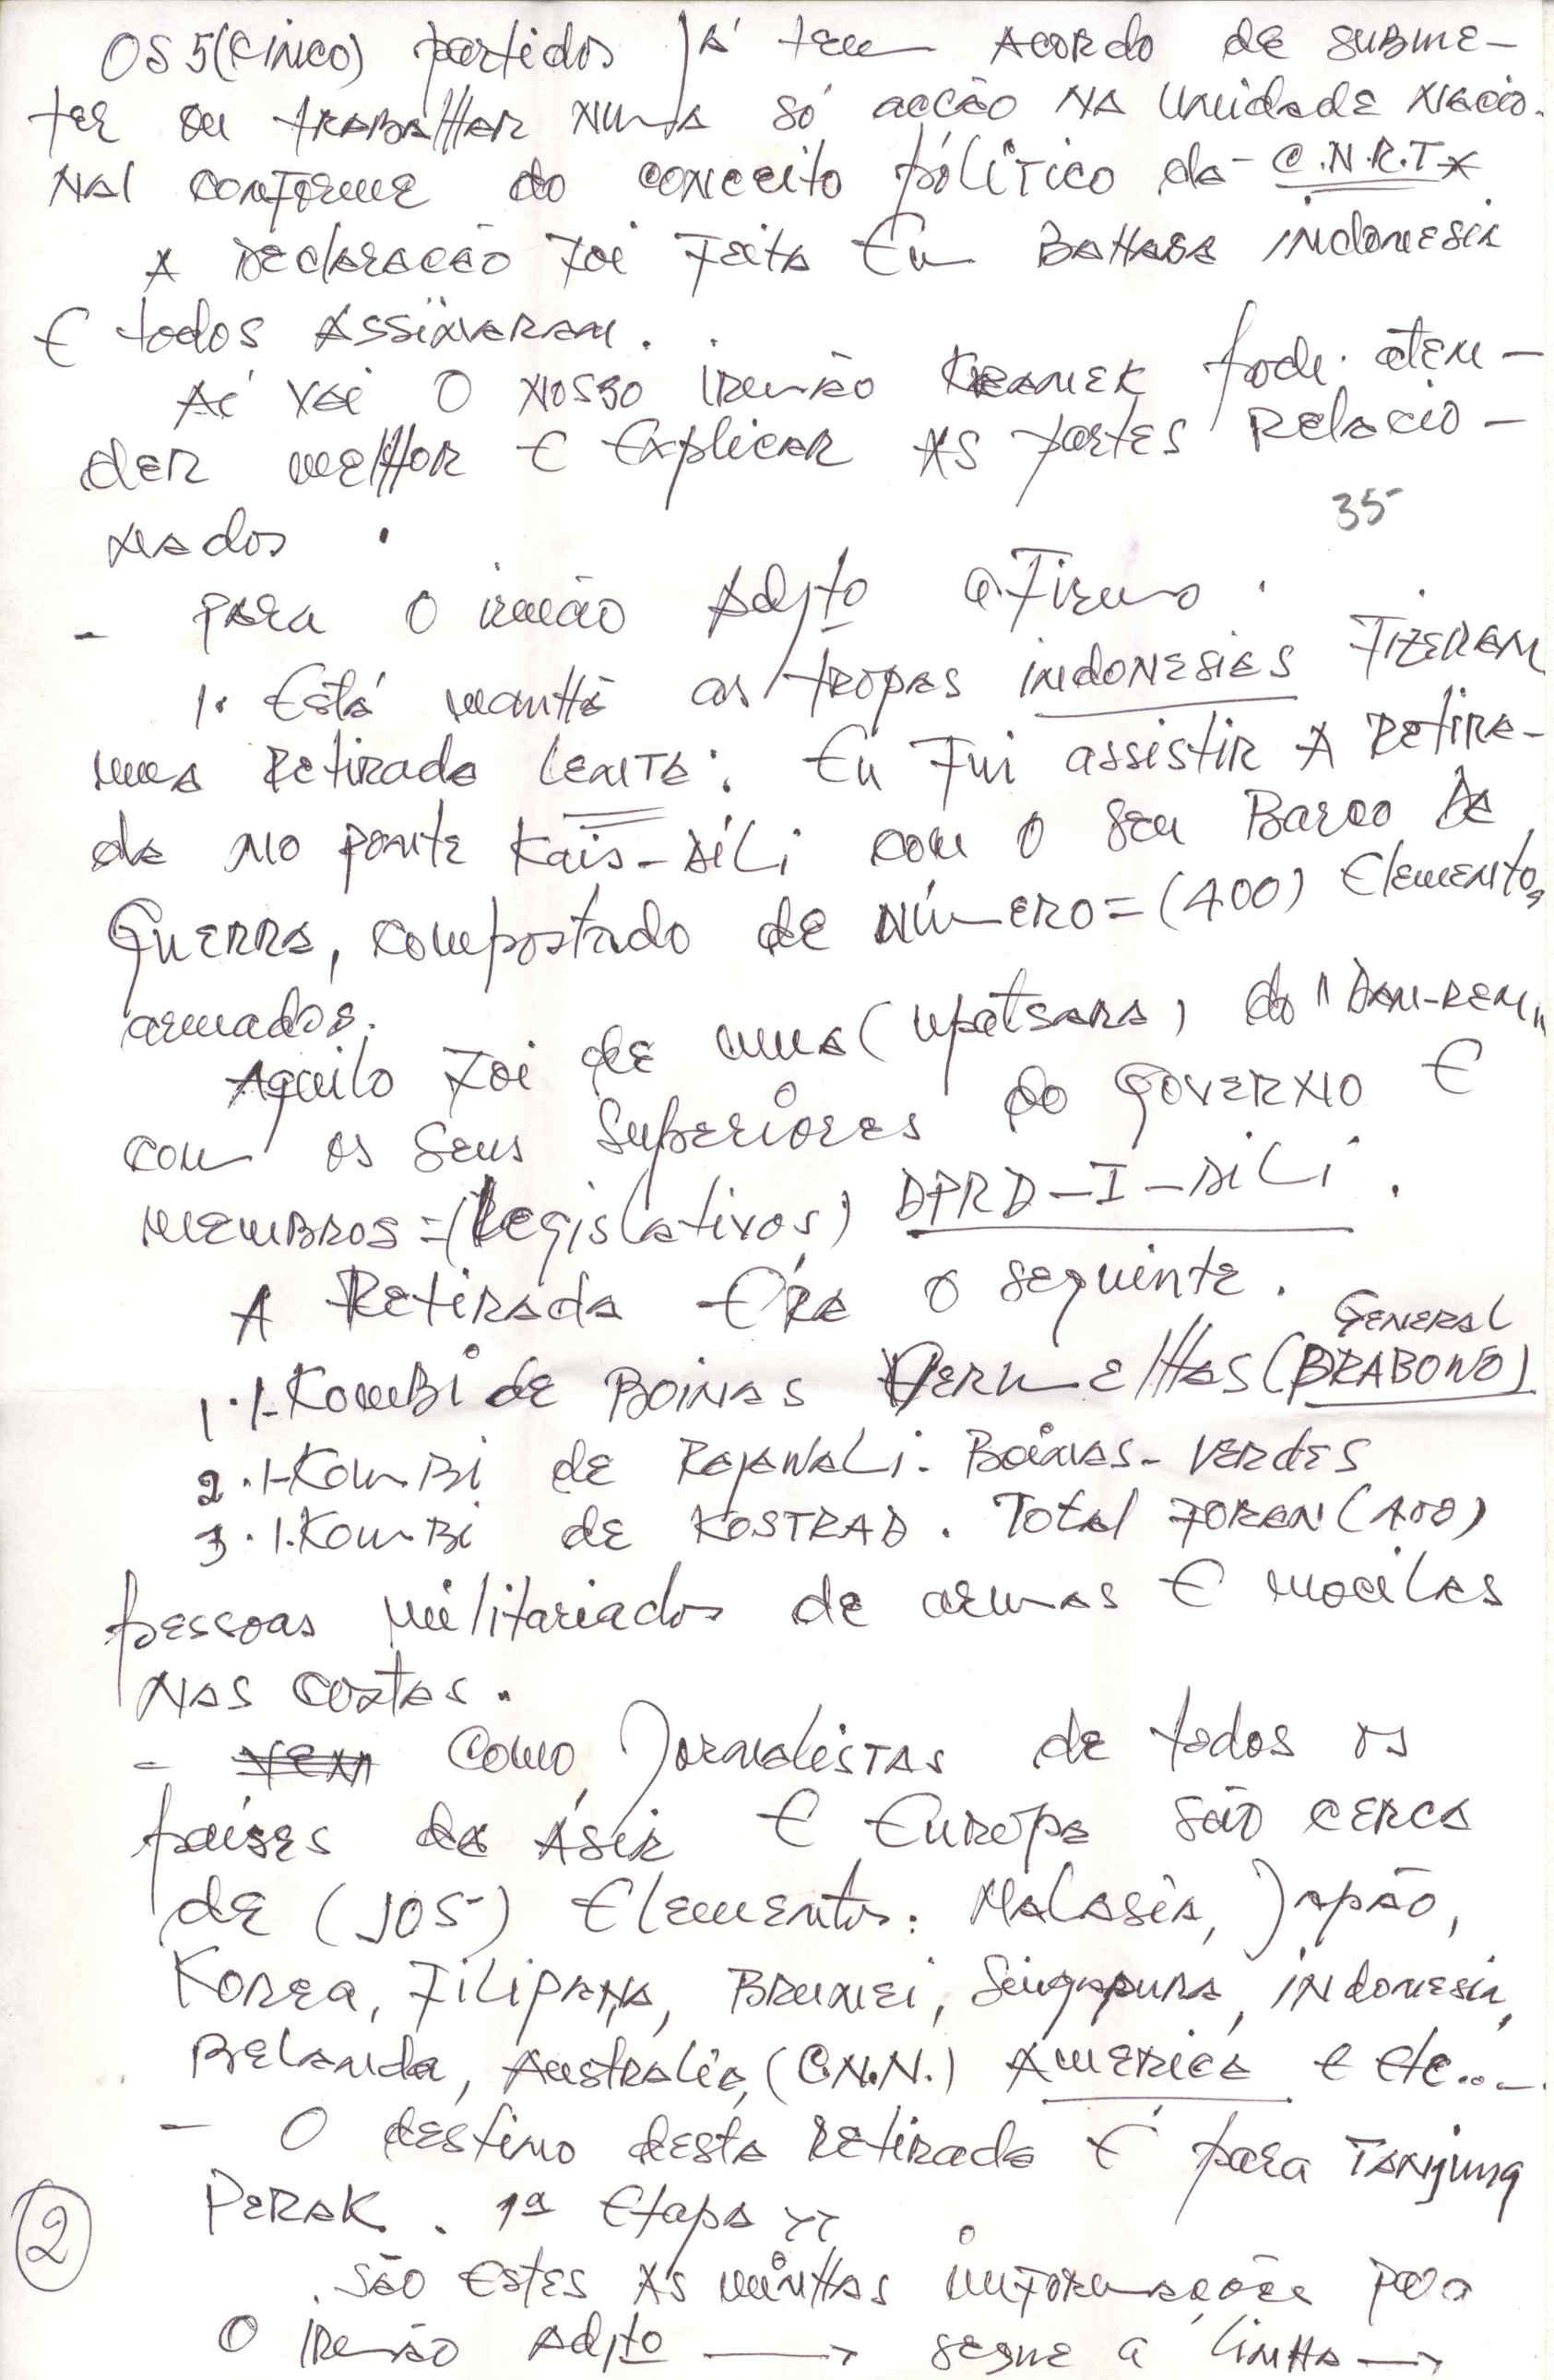 OS 5 (CINCO) partidos já tem ACORDO de SUBME-
TER ou TRABALHAR NUMA só acção NA Unidade NACIO-
NAL CONFORME do conceito pólitico da C.N.R.T.
A Declaração foi feita Em BAHASA INdonesia
E todos ASSINARAM.
Aí vai O NOSSO IRMÃO KRAMEK pode aten-
der melhor E Explicar AS partes Relacio-
nados.
35
- PARA O irmão Adjto aFirmo.
1. Está manhã as tropas iNdonesias FIZERAM
uma Retirada LENTA: Eu Fui assistir A Retira-
da no ponte Kais-Dili com O seu Barco de
Guerra, compostado de NúmERO=(400) Elementos
armados.
Aquilo foi de uma (upatsara) do "Dan-rem"
com os seus Superiores do Governo E
membros=(Legislativos) DPRD-I-DiLi.
A Retirada Éra o seguinte.
GENERAL
1.1-KomBi de BOINAS VERMELHAS (PRABOWO)
2.1-KomBi de RAJAWALi. Boinas-VERDES
3.1.KomBi de KOSTRAD. Total FORAN (400)
pessoas militariados de armas E mocilas
NAS costas.
- Como, Jornalistas de todos os
países da Ásia E Europa são cerca
de (105) Elementos: Malasia, Japão,
Korea, Filipana, Brunei, Singapura, iNdonesia,
Belanda, Australia, (C.N.N.) America e etc...-
- O destino desta Retirada É para Tanjung
Perak. 1ª Etapa
2
São estes As minhas informações para
O Irmão Adjto → segue a linha →